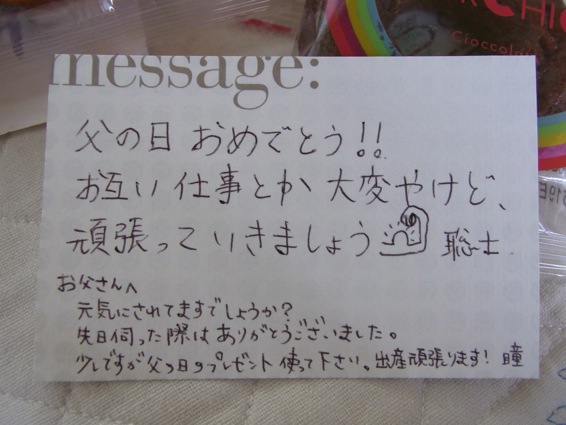 message:
父の日 おめでとう!!
お互い 仕事とか 大変やけど、
頑張っていきましょう 聡士
お父さんへ
元気にされてますでしょうか?
先日伺った際はありがとうございました。
少しですが父の日のプレゼント使って下さい。出産頑張ります! 瞳
Cioccola